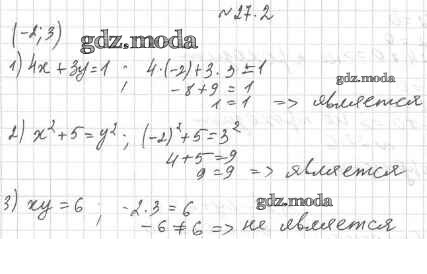 №27.2
(-2; 3)
gdz.moda
1) 4x + 3y = 1 ; 4·(-2) + 3·3 = 1
gdz.moda
-8 + 9 = 1
1 = 1 => является
2) x² + 5 = y² ; (-2)² + 5 = 3²
4 + 5 = 9
9 = 9 => является
gdz.moda
3) xy = 6 ; -2·3 = 6
-6 ≠ 6 => не является